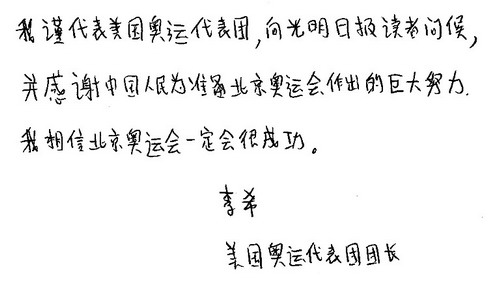 我谨代表美国奥运代表团,向光明日报读者问候,
并感谢中国人民为准备北京奥运会作出的巨大努力.
我相信北京奥运会一定会很成功。
李希
美国奥运代表团团长